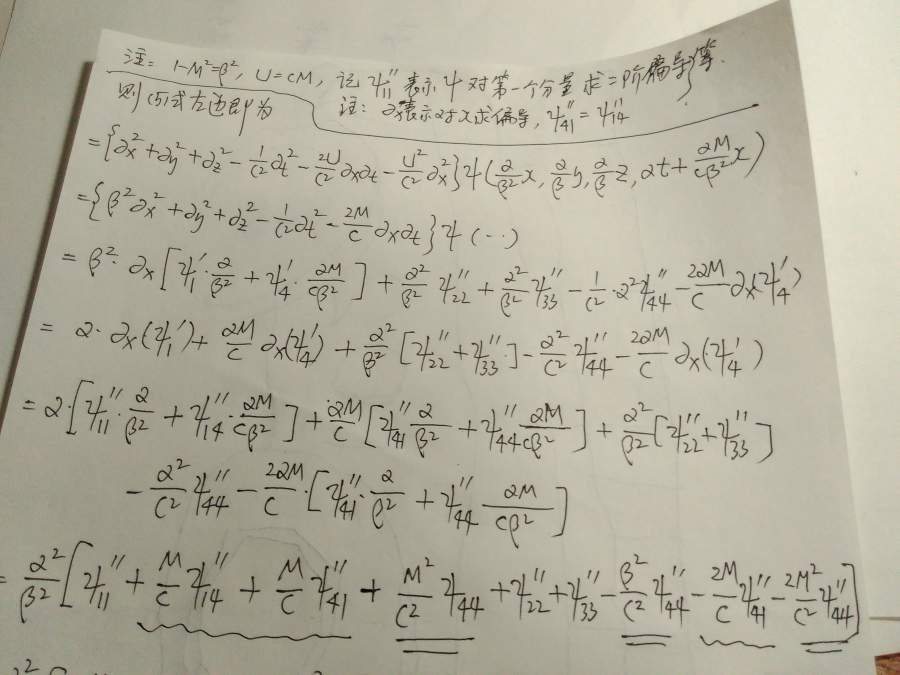 注: 1-M²=β², U=cM, 记 ψ₁₁'' 表示 ψ 对第一个分量求二阶偏导等.
则(5)式左边即为
注: ∂x表示对x求偏导, ψ₄₁''=ψ₁₄''
={∂x²+∂y²+∂z²-1/c²∂t²-2U/c²∂x∂t-U²/c²∂x²}ψ(α/β²x, α/βy, α/βz, αt+αM/cβ²x)
={β²∂x²+∂y²+∂z²-1/c²∂t²-2M/c∂x∂t}ψ(…)
=β²·∂x[ψ₁'·α/β²+ψ₄'·αM/cβ²]+α²/β²ψ₂₂''+α²/β²ψ₃₃''-1/c²·α²ψ₄₄''-2αM/c∂x(ψ₄')
=α·∂x(ψ₁')+αM/c∂x(ψ₄')+α²/β²[ψ₂₂''+ψ₃₃'']-α²/c²ψ₄₄''-2αM/c∂x(ψ₄')
=α·[ψ₁₁''·α/β²+ψ₁₄''·αM/cβ²]+αM/c[ψ₄₁''α/β²+ψ₄₄''αM/cβ²]+α²/β²[ψ₂₂''+ψ₃₃'']
-α²/c²ψ₄₄''-2αM/c·[ψ₄₁''·α/β²+ψ₄₄''αM/cβ²]
=α²/β²[ψ₁₁''+M/cψ₁₄''+M/cψ₄₁''+M²/c²ψ₄₄''+ψ₂₂''+ψ₃₃''-β²/c²ψ₄₄''-2M/cψ₄₁''-2M²/c²ψ₄₄'']